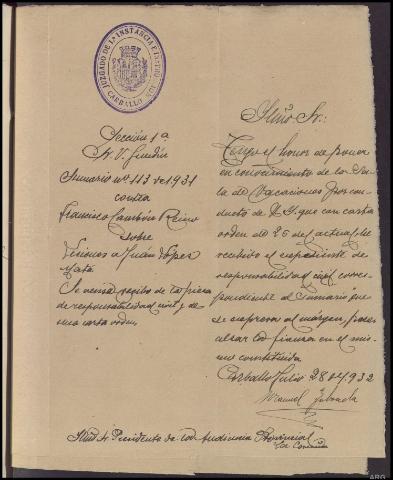 JUZGADO DE 1ª INSTANCIA E INSTRUCCION
CARBALLO
Sección 1ª
Sr. V.
Sumario nº 113 de 1931
contra
Francisco Cambón Reino
sobre
lesiones a Juan López
Mata
Se acusa recibo de la pieza
de responsabilidad civil y de
una carta orden
Ilmo Sr.:
Tengo el honor de poner
en conocimiento de la Sa-
la de Vacaciones por con-
ducto de V.I. que con carta
orden de 26 del actual he
recibido el expediente de
responsabilidad civil corres-
pondiente al sumario que
se expresa al márgen, para
alzar la fianza en el mis-
mo constituida
Carballo Julio 28 de 1932
Manuel
Ilmo Sr Presidente de la Audiencia Provincial
La Coruña
ARG